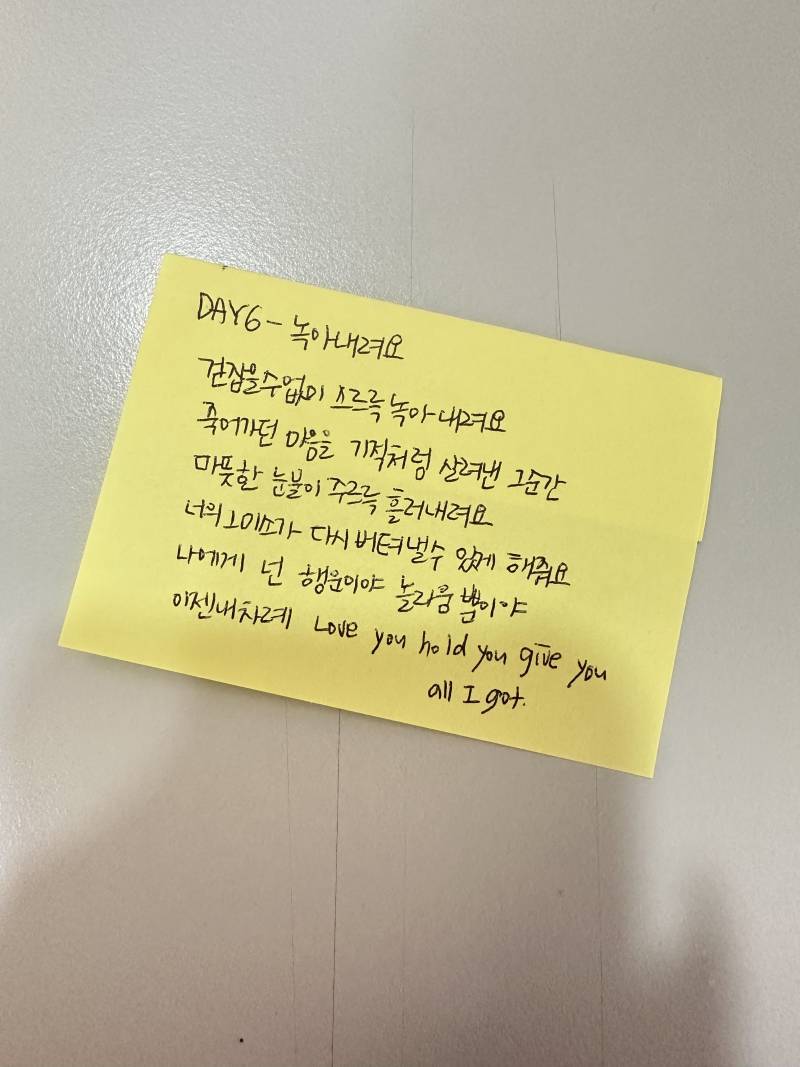 DAY6 - 녹아내려요
걷잡을수없이 스르륵 녹아내려요
죽어가던 마음을 기적처럼 살려낸 그순간
따뜻한 눈물이 주르륵 흘러내려요
너의 그미소가 다시 버텨낼수 있게 해줘요
나에게 넌 행운이야 놀라울 뿐이야
이젠내차례 Love you hold you give you
all I got.